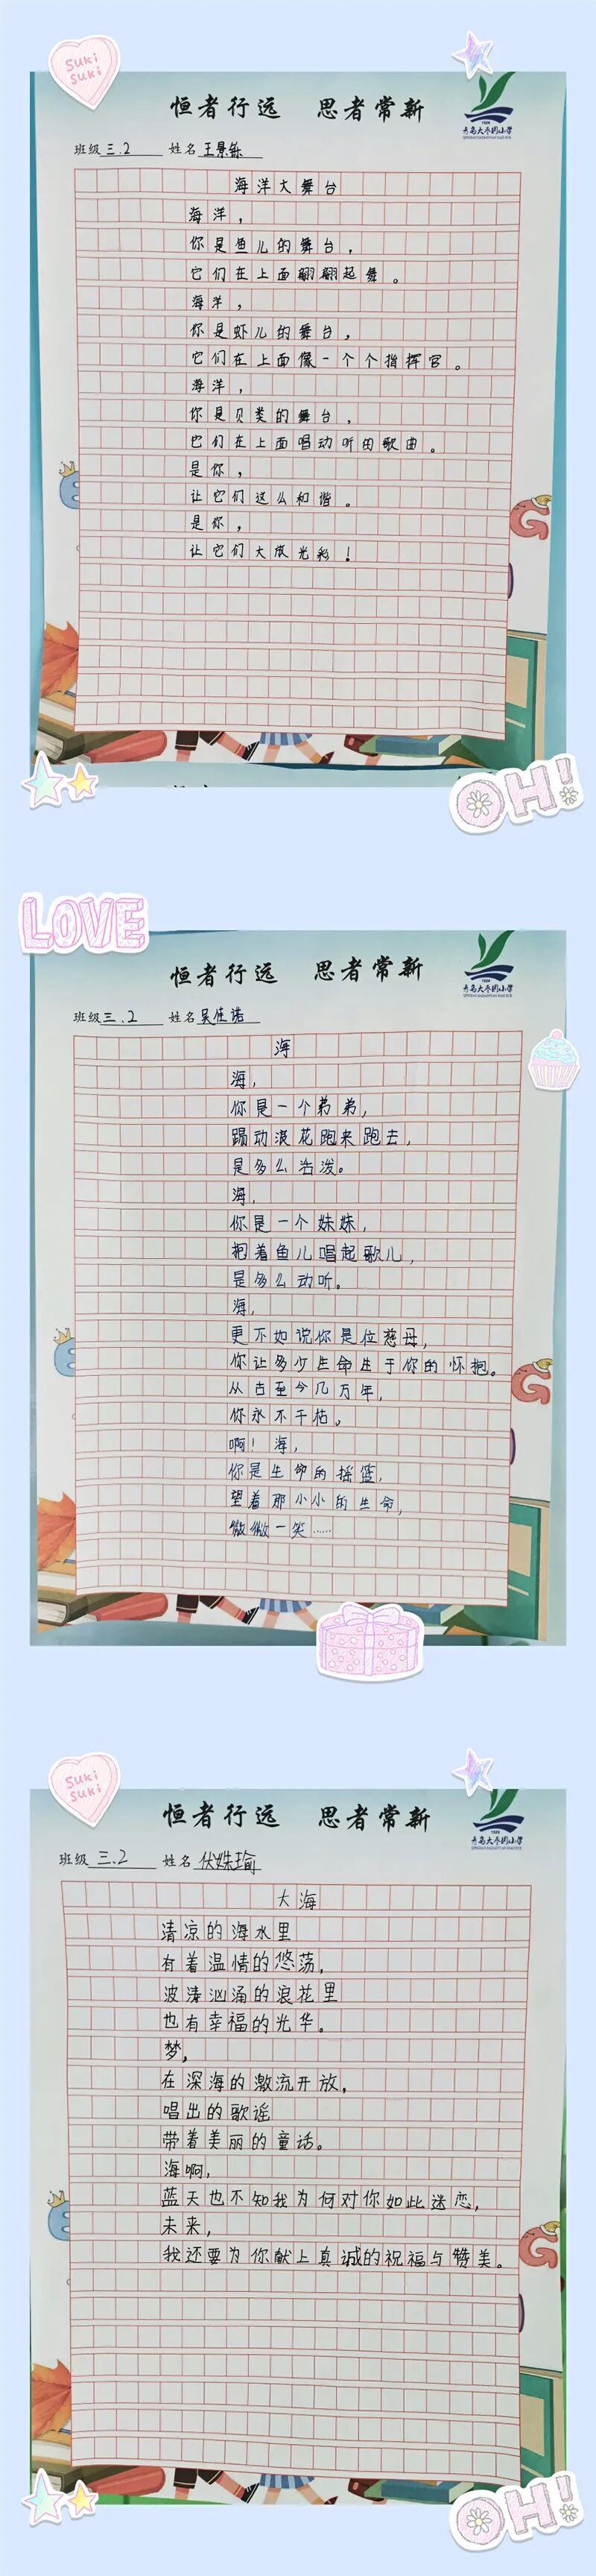 SUKI
SUKI
恒者行远 思者常新
1928
青岛大学路小学
班级 三.2 姓名 王景铄
海洋大舞台
海洋，
你是鱼儿的舞台，
它们在上面翩翩起舞。
海洋，
你是虾儿的舞台，
它们在上面像一个个指挥官。
海洋，
你是贝类的舞台，
它们在上面唱动听的歌曲。
是你，
让它们这么和谐。
是你，
让它们大放光彩！
OH!
LOVE
恒者行远 思者常新
1928
班级 三.2 姓名 吴佳诺
海
海，
你是一个弟弟，
踢动浪花跑来跑去，
是多么活泼。
海，
你是一个妹妹，
抱着鱼儿唱起歌儿，
是多么动听。
海，
更不如说你是位慈母，
你让多少生命生于你的怀抱。
从古至今几万年，
你永不干枯。
啊！海，
你是生命的摇篮，
望着那小小的生命，
微微一笑……
SUKI
SUKI
恒者行远 思者常新
1928
班级 三.2 姓名 伏姝瑜
大海
清凉的海水里
有着温情的悠荡，
波涛汹涌的浪花里
也有幸福的光华。
梦，
在深海的激流开放，
唱出的歌谣
带着美丽的童话。
海啊，
蓝天也不知我为何对你如此迷恋，
未来，
我还要为你献上真诚的祝福与赞美。
OH!